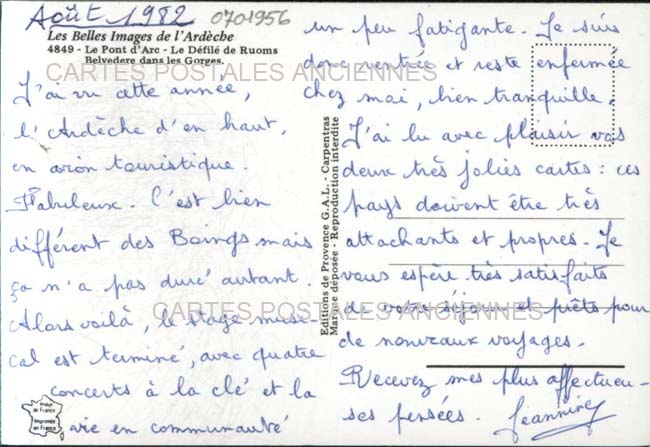 Août 1982
0701956
Les Belles Images de l'Ardèche
4849 - Le Pont d'Arc - Le Défilé de Ruoms
Belvedere dans les Gorges.
CARTES POSTALES ANCIENNES
J'ai vu cette année,
l'Ardèche d'en haut,
en avion touristique.
Fabuleux. C'est bien
différent des Boings mais
ça n'a pas duré autant.
Alors voilà, le stage musi-
cal est terminé, avec quatre
concerts à la clé et la
vie en communauté
Image de France
Imprimée en France
Editions de Provence G.A.L. - Carpentras
Marque déposée - Reproduction interdite
un peu fatigante. Je suis
donc rentrée et reste enfermée
chez moi, bien tranquille.
J'ai lu avec plaisir vos
deux très jolies cartes : ces
pays doivent être très
attachants et propres. Je
vous espère très satisfaits
de votre séjour et prêts pour
de nouveaux voyages.
Recevez mes plus affectueu-
ses pensées. Jeannine
CARTES POSTALES ANCIENNES